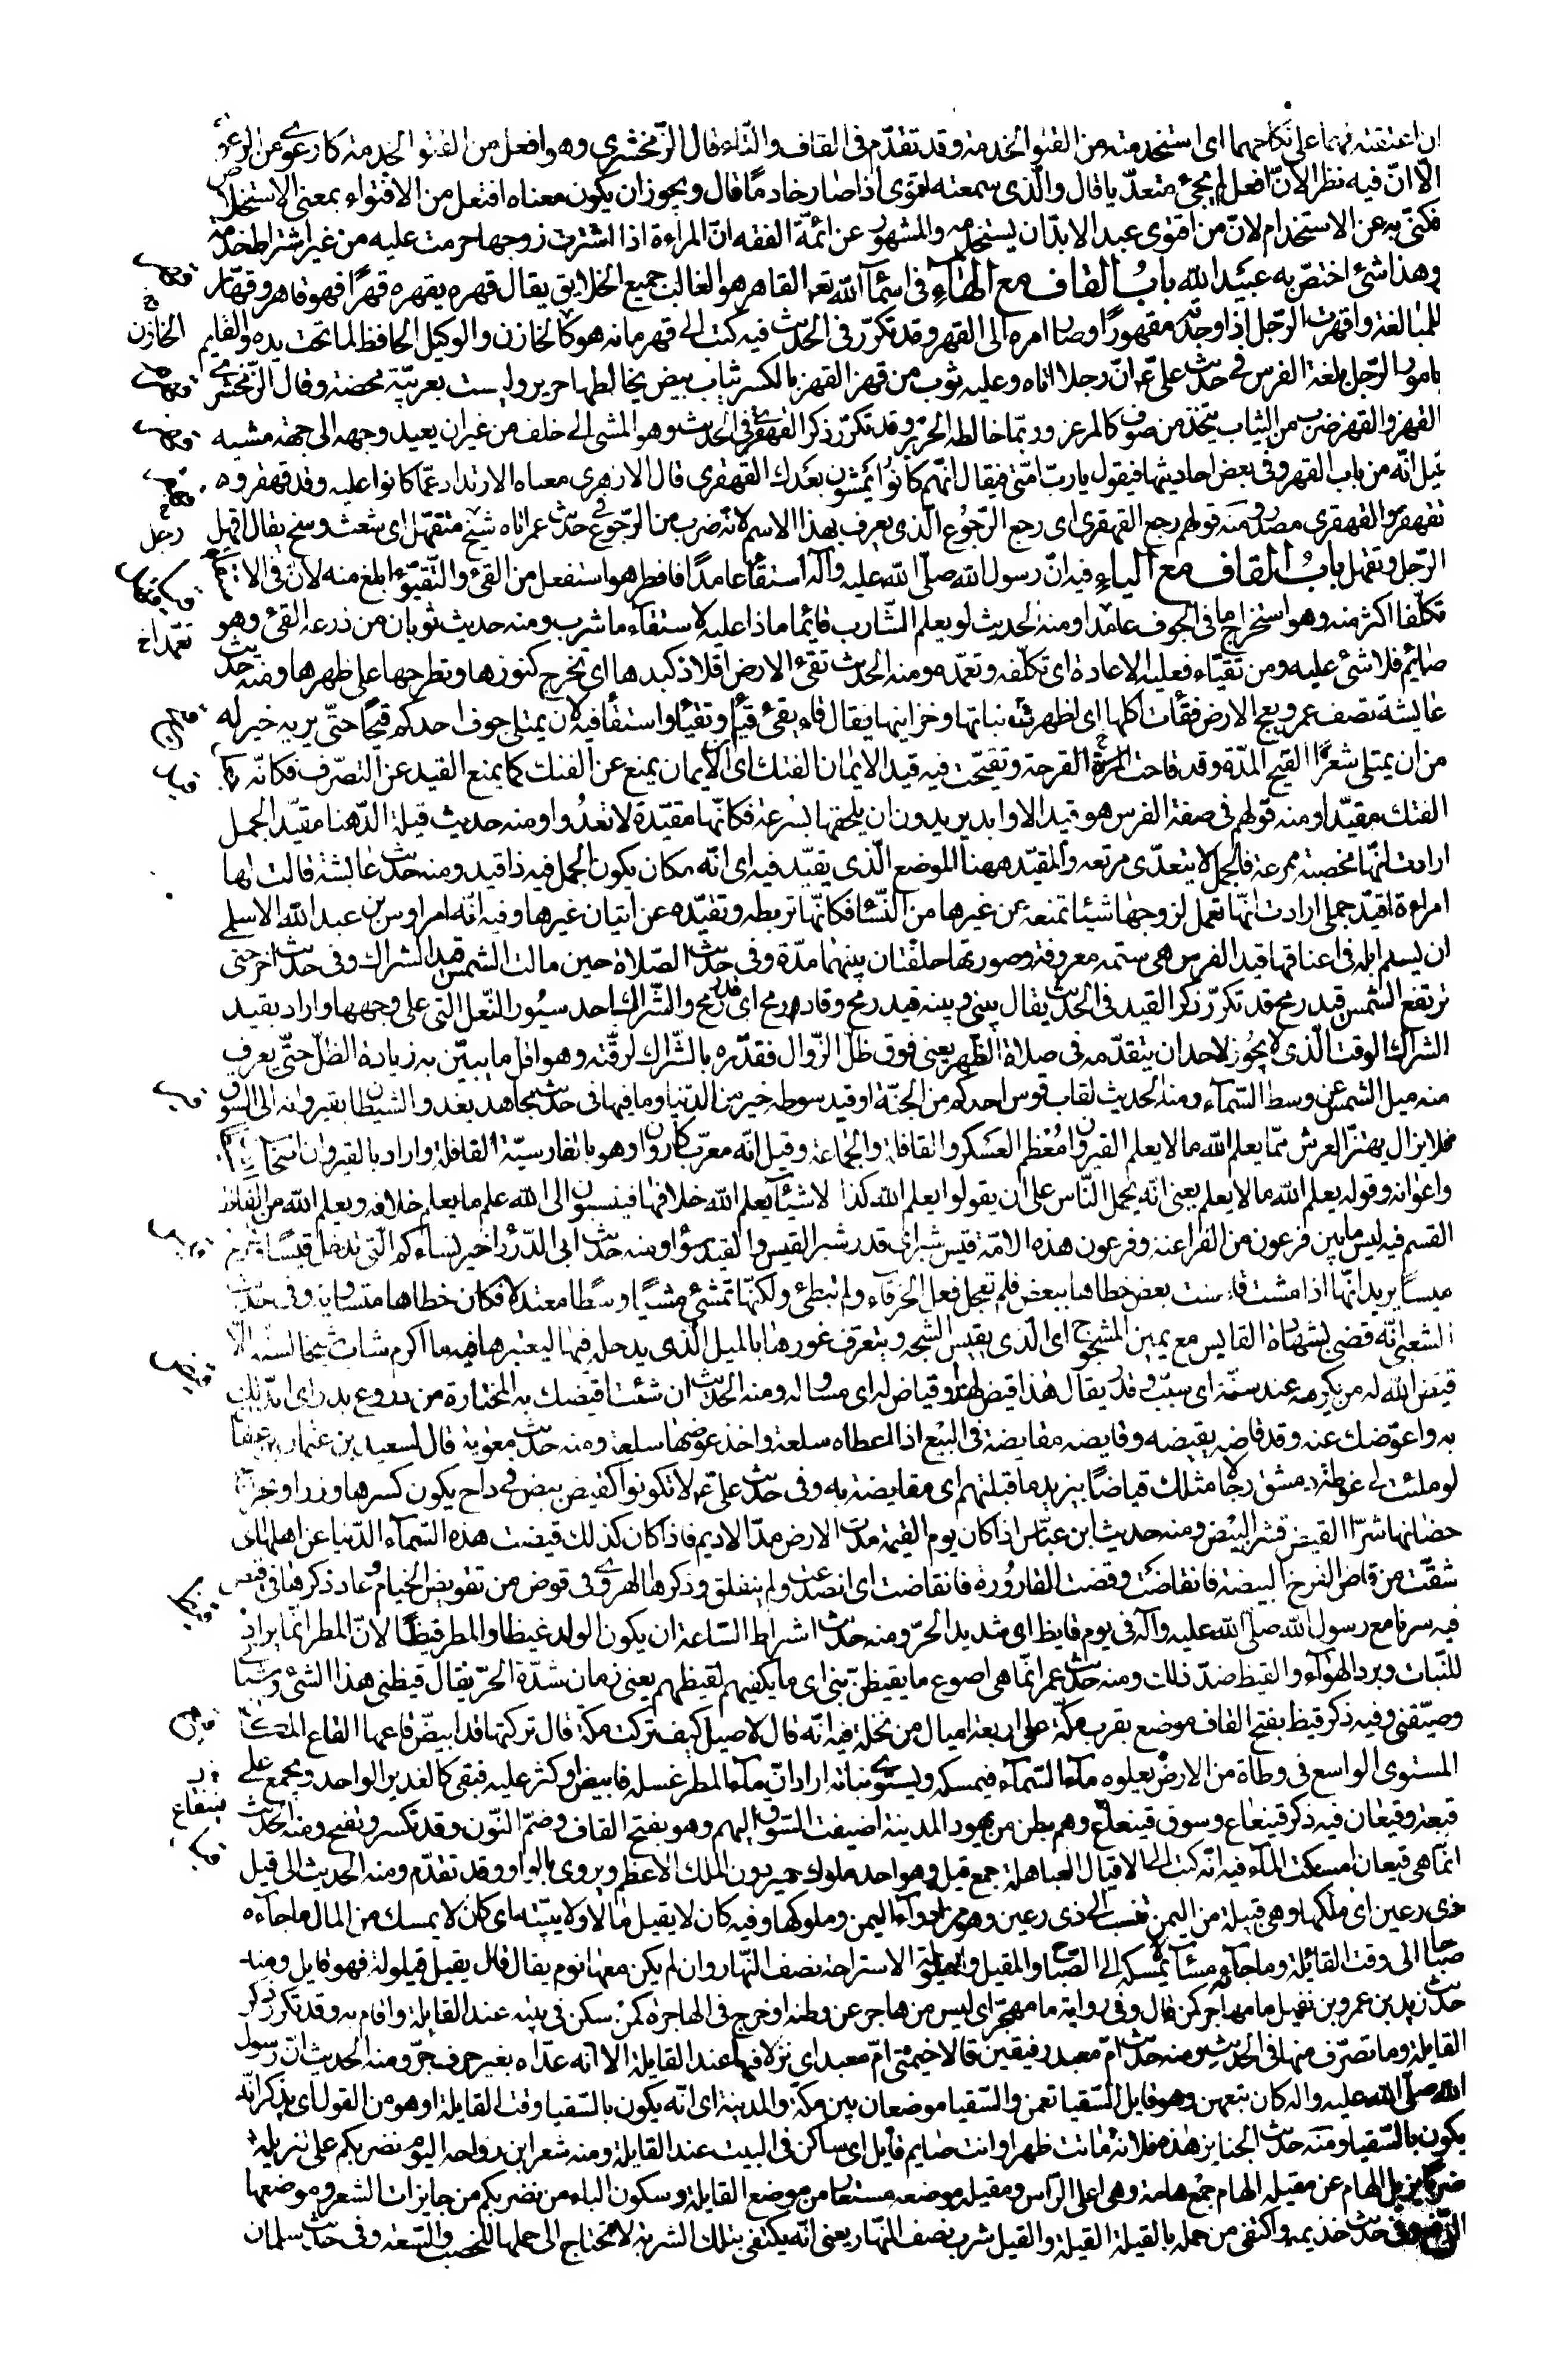 ان اعتقته فهما على نكاحهما اى استخدمته من القتو الخدمة وقد تقدّم فى القاف والتاء قال الزّمخشرى وهو افعل من القتو الخدمة كارعوى من الرعوى
الّا انّ فيه نظرا لانّ افعلّ لم يجئ متعدّيا قال والّذى سمعته اقتوى اذا صار خادمًا قال ويجوز ان يكون معناه افتعل من الاقتواء بمعنى الاستخلاص
فكنّى به عن الاستخدام لانّ من اقتوى عبدا لابدّ ان يستخدمه والمشهور عن ائمّة الفقه انّ المراءة اذا اشترت زوجها حرمت عليه من غير اشتراط خدمة
وهذا شئ اختصّ به عبيد الله باب القاف مع الهاء فى اسماء الله تعالى القاهر هو الغالب جميع الخلايق يقال قهره يقهره قهرًا فهو قاهر وقهّار
للمبالغة واقهرت الرّجل اذا وجدته مقهورًا او صار امره الى القهر وقد تكرّر فى الحديث فيه كتب الى قهرمانه هو كالخازن والوكيل الحافظ لما تحت يده والقايم
بامور الرّجل بلغة الفرس فى حديث علىّ انّ رجلا اتاه وعليه ثوب من قهز القهز بالكسر ثياب بيض يخالطها حرير وليست بعربيّة محضة وقال الزّمخشرى
القهز والقهز ضرب من الثياب يتّخذ من صوف كالمرعزى وربّما خالطه الحرير وقد تكرّر ذكر القهقرى فى الحديث وهو المشى الى خلف من غير ان يعيد وجهه الى جهة مشيه
قيل انّه من باب القهر وفى بعض احاديثها فيقول ياربّ امّتى فيقال انّهم كانوا يمشون بعدك القهقرى قال الازهرى معناه الارتداد عمّا كانوا عليه وقد قهقر وه
تقهقر والقهقرى مصدر ومنه قولهم رجع القهقرى اى رجع الرّجوع الّذى يعرف بهذا الاسم لانّه ضرب من الرّجوع فى حديث عمر اتاه شيخ متقهّل اى شعث وسخ يقال اقهل
الرّجل وتقهل باب القاف مع الياء فيه انّ رسول الله صلّى الله عليه وآله استقاء عامدًا فافطر هو استفعل من القئ والتقيّؤ ابلغ منه لانّ فى الاستقاء
تكلّفا اكثر منه وهو استخراج ما فى الجوف عامدا ومنه الحديث لو يعلم الشّارب قائما ماذا عليه لاستقاء ما شرب ومنه حديث ثوبان من ذرعه القئ وهو
صايم فلا شئ عليه ومن تقيّاء فعليه الاعادة اى تكلّفه وتعمّده ومنه الحديث تقئ الارض افلاذ كبدها اى تخرج كنوزها وتطرحها على ظهرها ومنه حديث
عايشة تصف عمر وبعج الارض فقاءت اكلها اى اظهرت نباتها وخزاينها يقال قاء يقئ قيئًا وتقيّأ واستقاء فيه لان يمتلى جوف احدكم قيحًا حتّى يريه خير له
من ان يمتلى شعرًا القيح المدّة وقد قاحت القرحة وتقيّحت فيه قيد الايمان الفتك اى الايمان يمنع عن الفتك كما يمنع القيد عن التصرّف فكانّه جعل
الفتك مقيّدا ومنه قولهم فى صفة الفرس هو قيد الاوابد يريدون ان يلحقها بسرعة فكانّها مقيّدة لا تعدوا ومنه حديث قيلة الدّهنا مقيّد الجمل
ارادت انّها مخصبة ممرعة فالجمل لا يتعدّى مرتعه والمقيّد ههنا الموضع الّذى يقيّد فيه اى انّه مكان يكون الجمل فيه ذا قيد ومنه حديث عايشة قالت لها
امراءة اقيّد جملى ارادت انّها تعمل لزوجها شيئا تمنعه عن غيرها من النّساء فكانّها تربطه وتقيّده عن اتيان غيرها وفيه انّه امر اوس بن عبد الله الاسلمى
ان يسم ابله فى اعناقها قيد الفرس هى سمة معروفة وصورتها حلقتان بينهما مدّة وفى حديث الصّلاة حين مالت الشمس قيد الشراك وفى حديث اخر حتى
ترتفع الشمس قيد رمح قد تكرّر ذكر القيد فى الحديث يقال بينى وبينه قيد رمح وقاد رمح اى قدر رمح والشّراك احد سيور النّعل التى على وجهها واراد بقيد
الشراك الوقت الّذى لا يجوز لاحد ان يتقدّمه فى صلاة الظهر يعنى فوق ظلّ الزّوال فقدّره بالشّراك لرقّته وهو اقلّ ما يبيّن به زيادة الظلّ حتّى يعرف
منه ميل الشمس عن وسط السّماء ومنه الحديث لقاب قوس احدكم من الجنّة او قيد سوطه خير من الدّنيا وما فيها فى حديث مجاهد يغدو الشيطان بقيروانه الى السوق
فلا يزال يهتزّ العرش ممّا يعلم الله ما لا يعلم القيروان معظم العسكر والقافلة والجماعة وقيل انّه معرّب كاروان وهو بالفارسيّة القافلة واراد بالقيروان اصحاب
واعوانه وقوله يعلم الله ما لا يعلم يعنى انّه يحمل النّاس على ان يقولوا يعلم الله كذا لاشياء يعلم الله خلافها فينسبون الى الله علم ما يعلم خلافه ويعلم الله من الفاظ
القسم فيه ليس ما بين فرعون من الفراعنة وفرعون هذه الامّة قيس شبر اى قدر شبر القيس والقيد سواء ومنه حديث ابى الدّرداء خير نساءكم الّتى تدخل قيسًا وتخرج
ميسًا يريد انّها اذا مشت قاست بعض خطاها ببعض فلم تعجل فعل الخرقاء ولم تبطئ ولكنّها تمشى مشيًا وسطًا معتدلا فكان خطاها متساوية وفى حديث
الشعبى انّه قضى بشهادة القايس مع يمين المشجوج اى الّذى يقيس الشجّة ويتعرّف غورها بالميل الّذى يدخله فيها ليعتبرها فيه ما اكرم شابّ شيخا لسنّه الّا
قيّض الله له من يكرمه عند سنّه اى سبّب وقدّر يقال هذا قيض لهذا وقياض له اى مساو له ومنه الحديث ان شئت اقيضك به المختارة من دروع بدر اى ابدلك
به واعوّضك عنه وقد قاضه يقيضه وقايضه مقايضة فى البيع اذا اعطاه سلعة واخذ عوضها سلعة ومنه حديث معوية قال لسعيد بن عثمان بن عفّان
لو ملئت لى غوطة دمشق رجالا مثلك قياضًا بيزيد ما قبلتهم اى مقايضة به وفى حديث علىّ لا تكونوا كقيض بيض فى داح يكون كسرها وزرا ويخرج
حضانها شرّا القيض قشر البيض ومنه حديث ابن عبّاس اذا كان يوم القيمة مدّت الارض مدّ الاديم فاذا كان كذلك قيضت هذه السّماء الدّنيا عن اهلها اى
شقّت من قاض الفرخ البيضة فانقاضت وقضت القارورة فانقاضت اى انصدعت ولم ينفلق وذكرها الهروى فى قوض من تقويض الخيام وعاد ذكرها فى قيض
فيه سرنا مع رسول الله صلّى الله عليه وآله فى يوم قايظ اى شديد الحرّ ومنه حديث اشراط السّاعة ان يكون الولد غيظا والمطر قيظًا لانّ المطر انّما يراد
للنّبات وبرد الهواء والقيظ ضدّ ذلك ومنه حديث عمر انّما هى اصوع ما يقيّظن بنىّ اى ما يكفيهم لقيظهم يعنى زمان شدّة الحرّ يقال قيظنى هذا الشئ وشتّانى
وصيّفنى وفيه ذكر قيظ بفتح القاف موضع بقرب مكّة على اربعة اميال من نخلة فيه انّه قال لاصيل كيف تركت مكّة قال تركتها قد ابيضّ قاعها القاع المكان
المستوى الواسع فى وطأة من الارض يعلوه ماء السّماء فيمسكه ويستوى نباته اراد انّ ماء المطر غسله فابيضّ او كثر عليه فبقى كالغدير الواحد ويجمع على
قيعة وقيعان فيه ذكر قينقاع وسوق قينقاع وهم بطن من يهود المدينة اضيفت السّوق اليهم وهو بفتح القاف وضمّ النّون وقد تكسر وتفتح ومنه الحديث
انّما هى قيعان امسكت الماء فيه انّه كتب الى الاقيال العباهلة جمع قيل وهو احد ملوك حمير دون الملك الاعظم ويروى بالواو وقد تقدّم ومنه الحديث الى قيل
ذى رعين اى ملكها وهى قبيلة من اليمن تنسب الى ذى رعين وهو من اذواء اليمن وملوكها وفيه كان لا يقيل مالا ولا يبيّته اى كان لا يمسك من المال ما جاءه
صباحا الى وقت القائلة وما جاءه مساء لا يمسكه الى الصّباح والمقيل والقيلولة الاستراحة نصف النّهار وان لم يكن معها نوم يقال قال يقيل قيلولة فهو قايل ومنه
حديث زيد بن عمرو بن نفيل ما مهاجر كمن قال وفى رواية ما مهجّر اى ليس من هاجر عن وطنه او خرج فى الهاجرة كمن سكن فى بيته عند القايلة واقام به وقد تكرّر ذكر
القايلة وما تصرّف منها فى الحديث ومنه حديث امّ معبد رفيقين قالا خيمتى امّ معبد اى نزلا فيها عند القايلة الا انّه عدّاه بغير حرف جرّ ومنه الحديث انّ رسول
الله صلّى الله عليه واله كان بتعهن وهو قايل السّقيا تعهن والسّقيا موضعان بين مكّة والمدينة اى انّه يكون بالسّقيا وقت القايلة او هو من القول اى يذكر انّه
يكون بالسّقيا ومنه حديث الجنايز هذه فلانة ماتت ظهرا وانت صايم قايل اى ساكن فى البيت عند القايلة ومنه شعر ابن رواحة اليوم نضربكم على تنزيله
ضربًا يزيل الهام عن مقيله الهام جمع هامة وهى اعلى الرّأس ومقيله موضعه مستعار من موضع القايلة وسكون الباء من نضربكم من جايزات الشعر وموضعها
الرّفع وفى حديث خذيمة واكتفى من حمله بالقيلة القيلة والقيل شرب نصف النّهار يعنى انّه يكتفى بتلك الشربة لا يحتاج الى حملها للخصب والسّعة وفى حديث سلمان